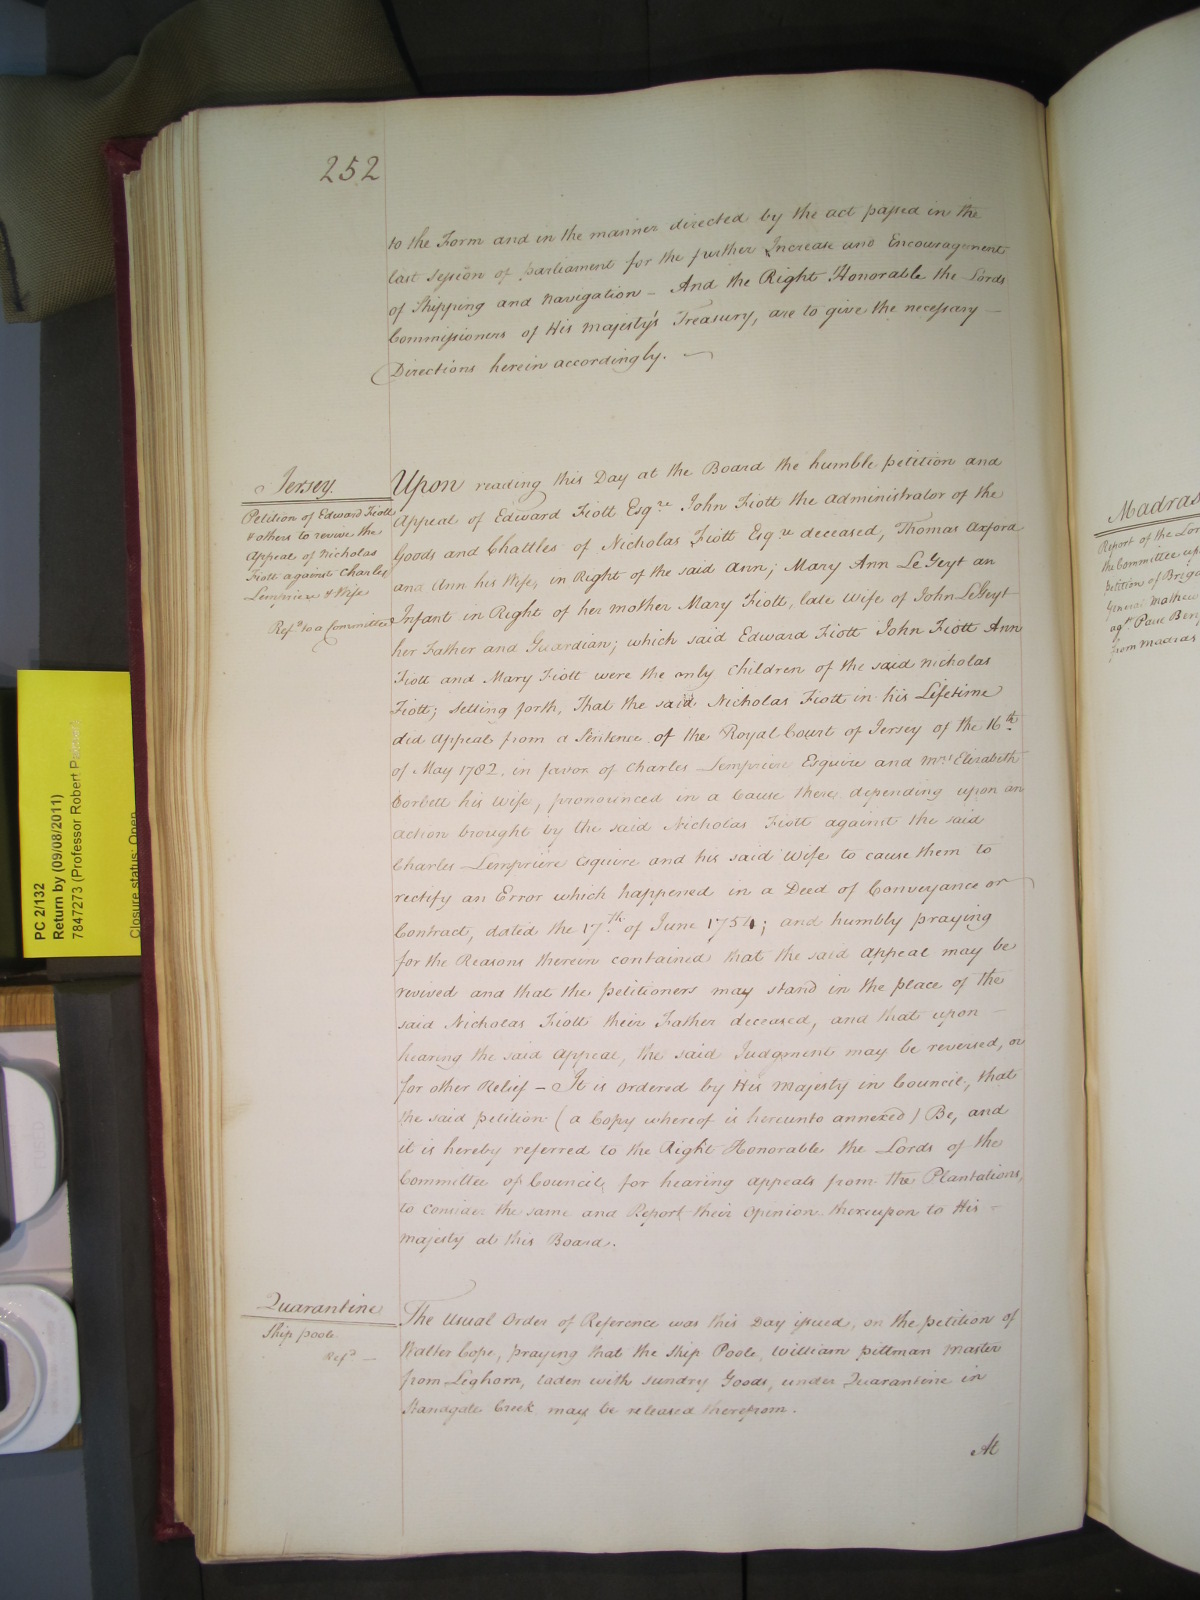 252
to the Form and in the manner directed by the act passed in the
last Session of parliament for the further Increase and Encouragement
of Shipping and Navigation – And the Right Honorable the Lords
Commissioners of His Majesty's Treasury, are to give the necessary –
Directions herein accordingly. –
Jersey.
Petition of Edward Fiott
& others to revive the
Appeal of Nicholas
Fiott against Charles
Lempriere & Wife
Ref.d to a Committee
Upon reading this Day at the Board the humble petition and
Appeal of Edward Fiott Esq.re John Fiott the administrator of the
Goods and Chattles of Nicholas Fiott Esq.re deceased, Thomas Axford
and Ann his Wife, in Right of the said Ann; Mary Ann Le Geyt an
Infant in Right of her mother Mary Fiott, late Wife of John LeGeyt
her Father and Guardian; which said Edward Fiott John Fiott Ann
Fiott and Mary Fiott were the only Children of the said Nicholas
Fiott; setting forth, That the said Nicholas Fiott in his Lifetime
did Appeal from a Sentence of the Royal Court of Jersey of the 16th
of May 1782. in favor of Charles Lempriere Esquire and Mrs. Elizabeth
Corbett his Wife, pronounced in a Cause there depending upon an
action brought by the said Nicholas Fiott against the said
Charles Lempriere Esquire and his said Wife to cause them to
rectify an Error which happened in a Deed of Conveyance or
Contract, dated the 17.th of June 1754; and humbly praying
for the Reasons therein contained that the said appeal may be
revived and that the petitioners may stand in the place of the
said Nicholas Fiott their Father deceased, and that upon –
hearing the said Appeal, the said Judgment may be reversed, or
for other Relief – It is ordered by His Majesty in Council, that
the said petition (a Copy whereof is hereunto annexed) Be, and
it is hereby referred to the Right Honorable the Lords of the
Committee of Council for hearing appeals from the Plantations,
to consider the same and Report their Opinion thereupon to His –
Majesty at this Board.
Quarantine
Ship Poole
Ref.d –
The Usual Order of Reference was this Day issued, on the petition of
Walter Cope, praying that the Ship Poole, William pittman Master
from Leghorn, laden with sundry Goods, under Quarantine in
Standgate Creek may be released therefrom.
At
Madras
Report of the Lor
the Committee up
petition of Briga
General Mathew
ag.st Paul Ben
from Madras
PC 2/132
Return by (09/08/2011)
7847273 (Professor Robert
Closure status: Open